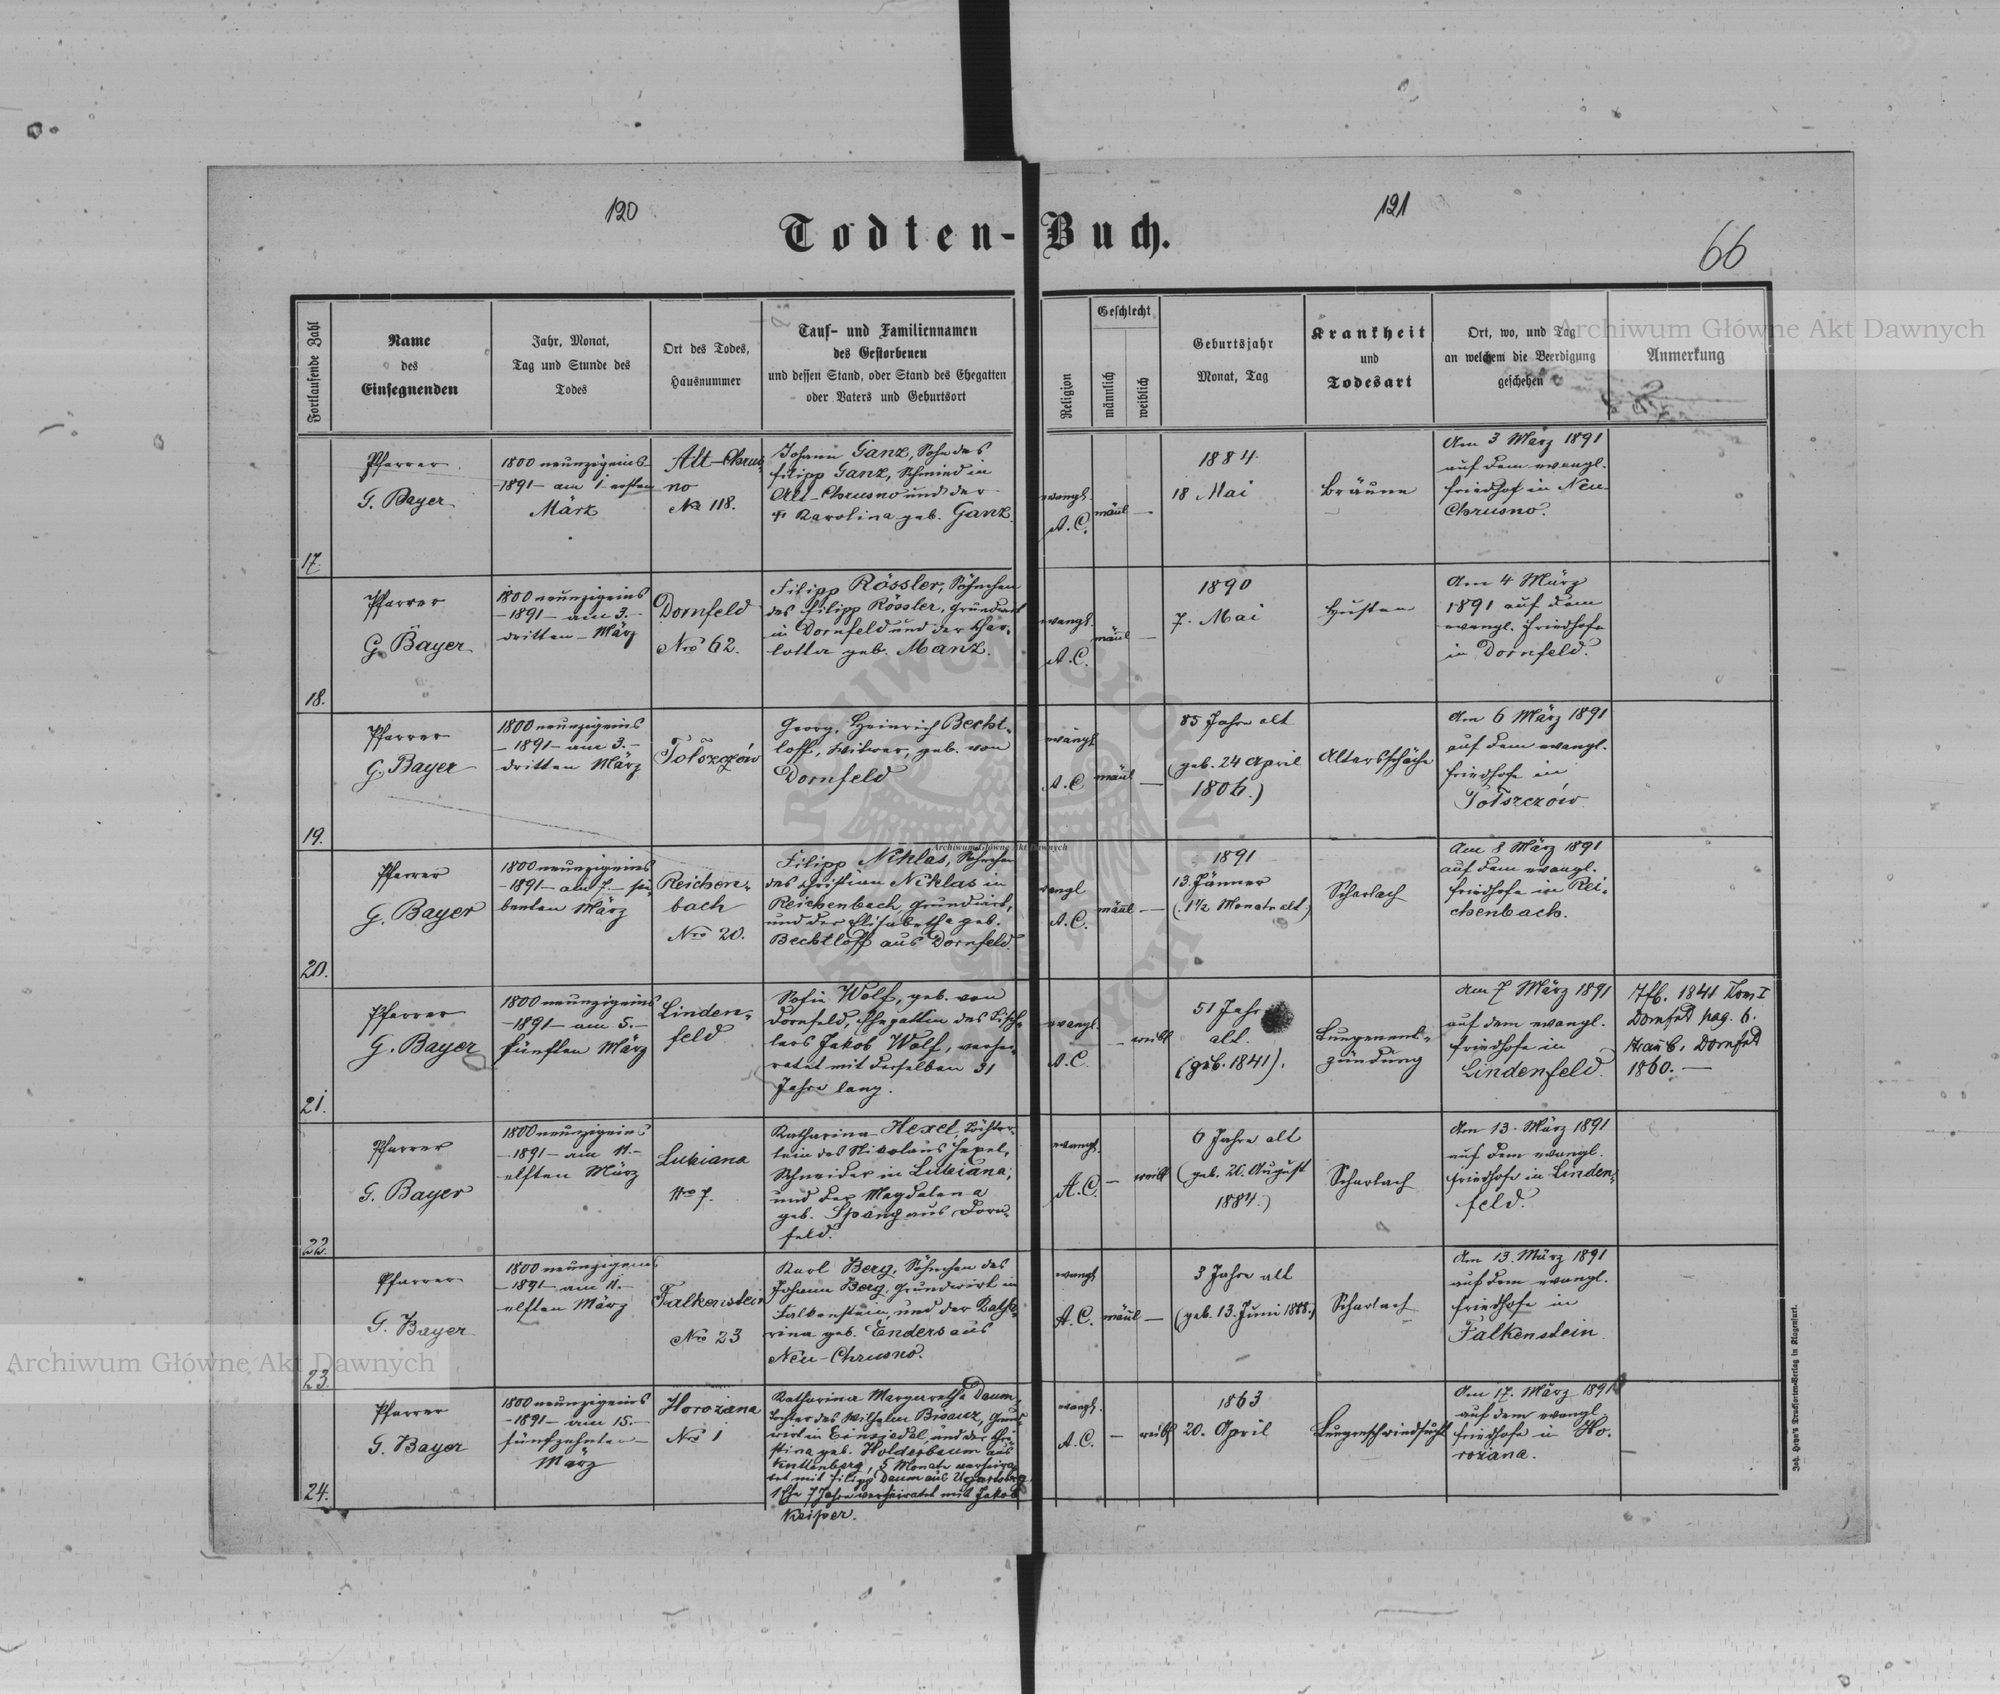 120
121
Todten-Buch.
66
Fortlaufende Zahl
Name
des
Einsegnenden
Jahr, Monat,
Tag und Stunde des
Todes
Ort des Todes,
Hausnummer
Tauf- und Familiennamen
des Gestorbenen
und dessen Stand, oder Stand des Ehegatten
oder Vaters und Geburtsort
Religion
Geschlecht
männlich
weiblich
Geburtsjahr
Monat, Tag
Krankheit
und
Todesart
Ort, wo, und Tag
an welchem die Beerdigung
geschehen
Anmerkung
Archiwum Główne Akt Dawnych
17.
Pfarrer
G. Bayer
1800 neunzigeins
-1891- am 1. ersten
März
Alt-Chrus-
no
No 118.
Johann Ganz, Sohn des
Filipp Ganz, Schmied in
Alt-Chrusno und der
† Karolina geb. Ganz.
evangl.
A.C.
mänl
—
1884
18 Mai
Bräune
Am 3 März 1891
auf dem evangl.
Friedhof in Neu
Chrusno.
18.
Pfarrer
G. Bayer
1800 neunzigeins
-1891- am 3.-
dritten - März
Dornfeld
Nro 62.
Filipp Rössler, Söhnchen
des Filipp Rössler, Grundwirt
in Dornfeld und der Char-
lotte geb. Manz.
evangl.
A.C.
mänl
—
1890
7. Mai
Husten
Am 4 März
1891 auf dem
evangl. Friedhofe
in Dornfeld.
19.
Pfarrer
G. Bayer
1800 neunzigeins
-1891- am 3.-
dritten März
Georg Heinrich Becht-
loff, Witwer, geb. von
Dornfeld
evangl.
A.C
mänl
—
85 Jahre alt
(geb. 24 April
Altersschäche
Am 6 März 1891
auf dem evangl.
Friedhofe in
Tołszczów
Archiwum Główne Akt Dawnych
20.
Pfarrer
G. Bayer
1800 neunzigeins
-1891- am 7.- sie-
benten März
Reichen-
bach
Nro 20.
Filipp Niklas, Söhnchen
des Christian Niklas in
Reichenbach, Grundwirt,
und der Elisabetha geb.
Bechtloff aus Dornfeld.
evangl
A.C.
mänl
—
1891
13. Jänner
(1½ Monate alt)
Scharlach
Am 8 März 1891
auf dem evangl.
Friedhofe in Rei-
chenbach.
21.
Pfarrer
G. Bayer
1800 neunzigeins
-1891- am 5.-
fünften März
Linden-
feld
Sofie Wolf, geb. von
Dornfeld, Ehegattin des Tisch-
lers Jakob Wolf, verhei-
ratet mit derselben 31
Jahre lang.
evangl.
A.C.
—
weibl
51 Jahre
alt.
(geb. 1841).
Lungenent-
zündung
Am 7 März 1891
auf dem evangl.
Friedhofe in
Lindenfeld.
Tfb. 1841 Tom I
Dornfeld pag. 6.
Traub. Dornfeld
1860. —
22.
Pfarrer
G. Bayer
1800 neunzigeins
-1891- am 11.-
elften März
Lubiana
Nro 7.
Katharina Hexel, Töchter-
lein des Nikolaus Hexel,
Schneider in Lubiana,
und der Magdalena
geb. Spang aus Dorn-
feld.
evangl.
A.C.
—
weibl
6 Jahre alt
August
1884.)
Scharlach
Am 13. März 1891
auf dem evangl.
Friedhofe in Linden-
feld.
23.
Pfarrer
G. Bayer
1800 neunzigeins
-1891- am 11.-
elften März
Falkenstein
Nro 23
Karl Berg, Söhnchen des
Johann Berg, Grundwirt in
Falkenstein, und der Katha-
rina geb. Enders aus
Neu-Chrusno.
evangl
A.C.
mänl
—
3 Jahre alt
(geb. 13. Juni 1888.)
Scharlach
Am 13. März 1891
auf dem evangl.
Friedhofe in
Falkenstein.
Archiwum Główne Akt Dawnych
24.
Pfarrer
G. Bayer
1800 neunzigeins
-1891- am 15.-
fünfzehnten-
März
Horozana
Nro 1
Katharina Margaretha Daum,
Tochter des Wilhelm Bisanz, Grund-
wirt in Einsiedel und der Chri-
stina geb. Holderbaum aus
5 Monate verheira-
tet mit Filipp Daum aus Ugartsberg
1 Ehe 7 Jahre verheiratet mit Jakob
Keiper.
evangl.
A.C.
—
weibl
1863
20. April
Lungenschwindsucht
Am 17. März 1891
auf dem evangl.
Friedhofe in Ho-
rozana.